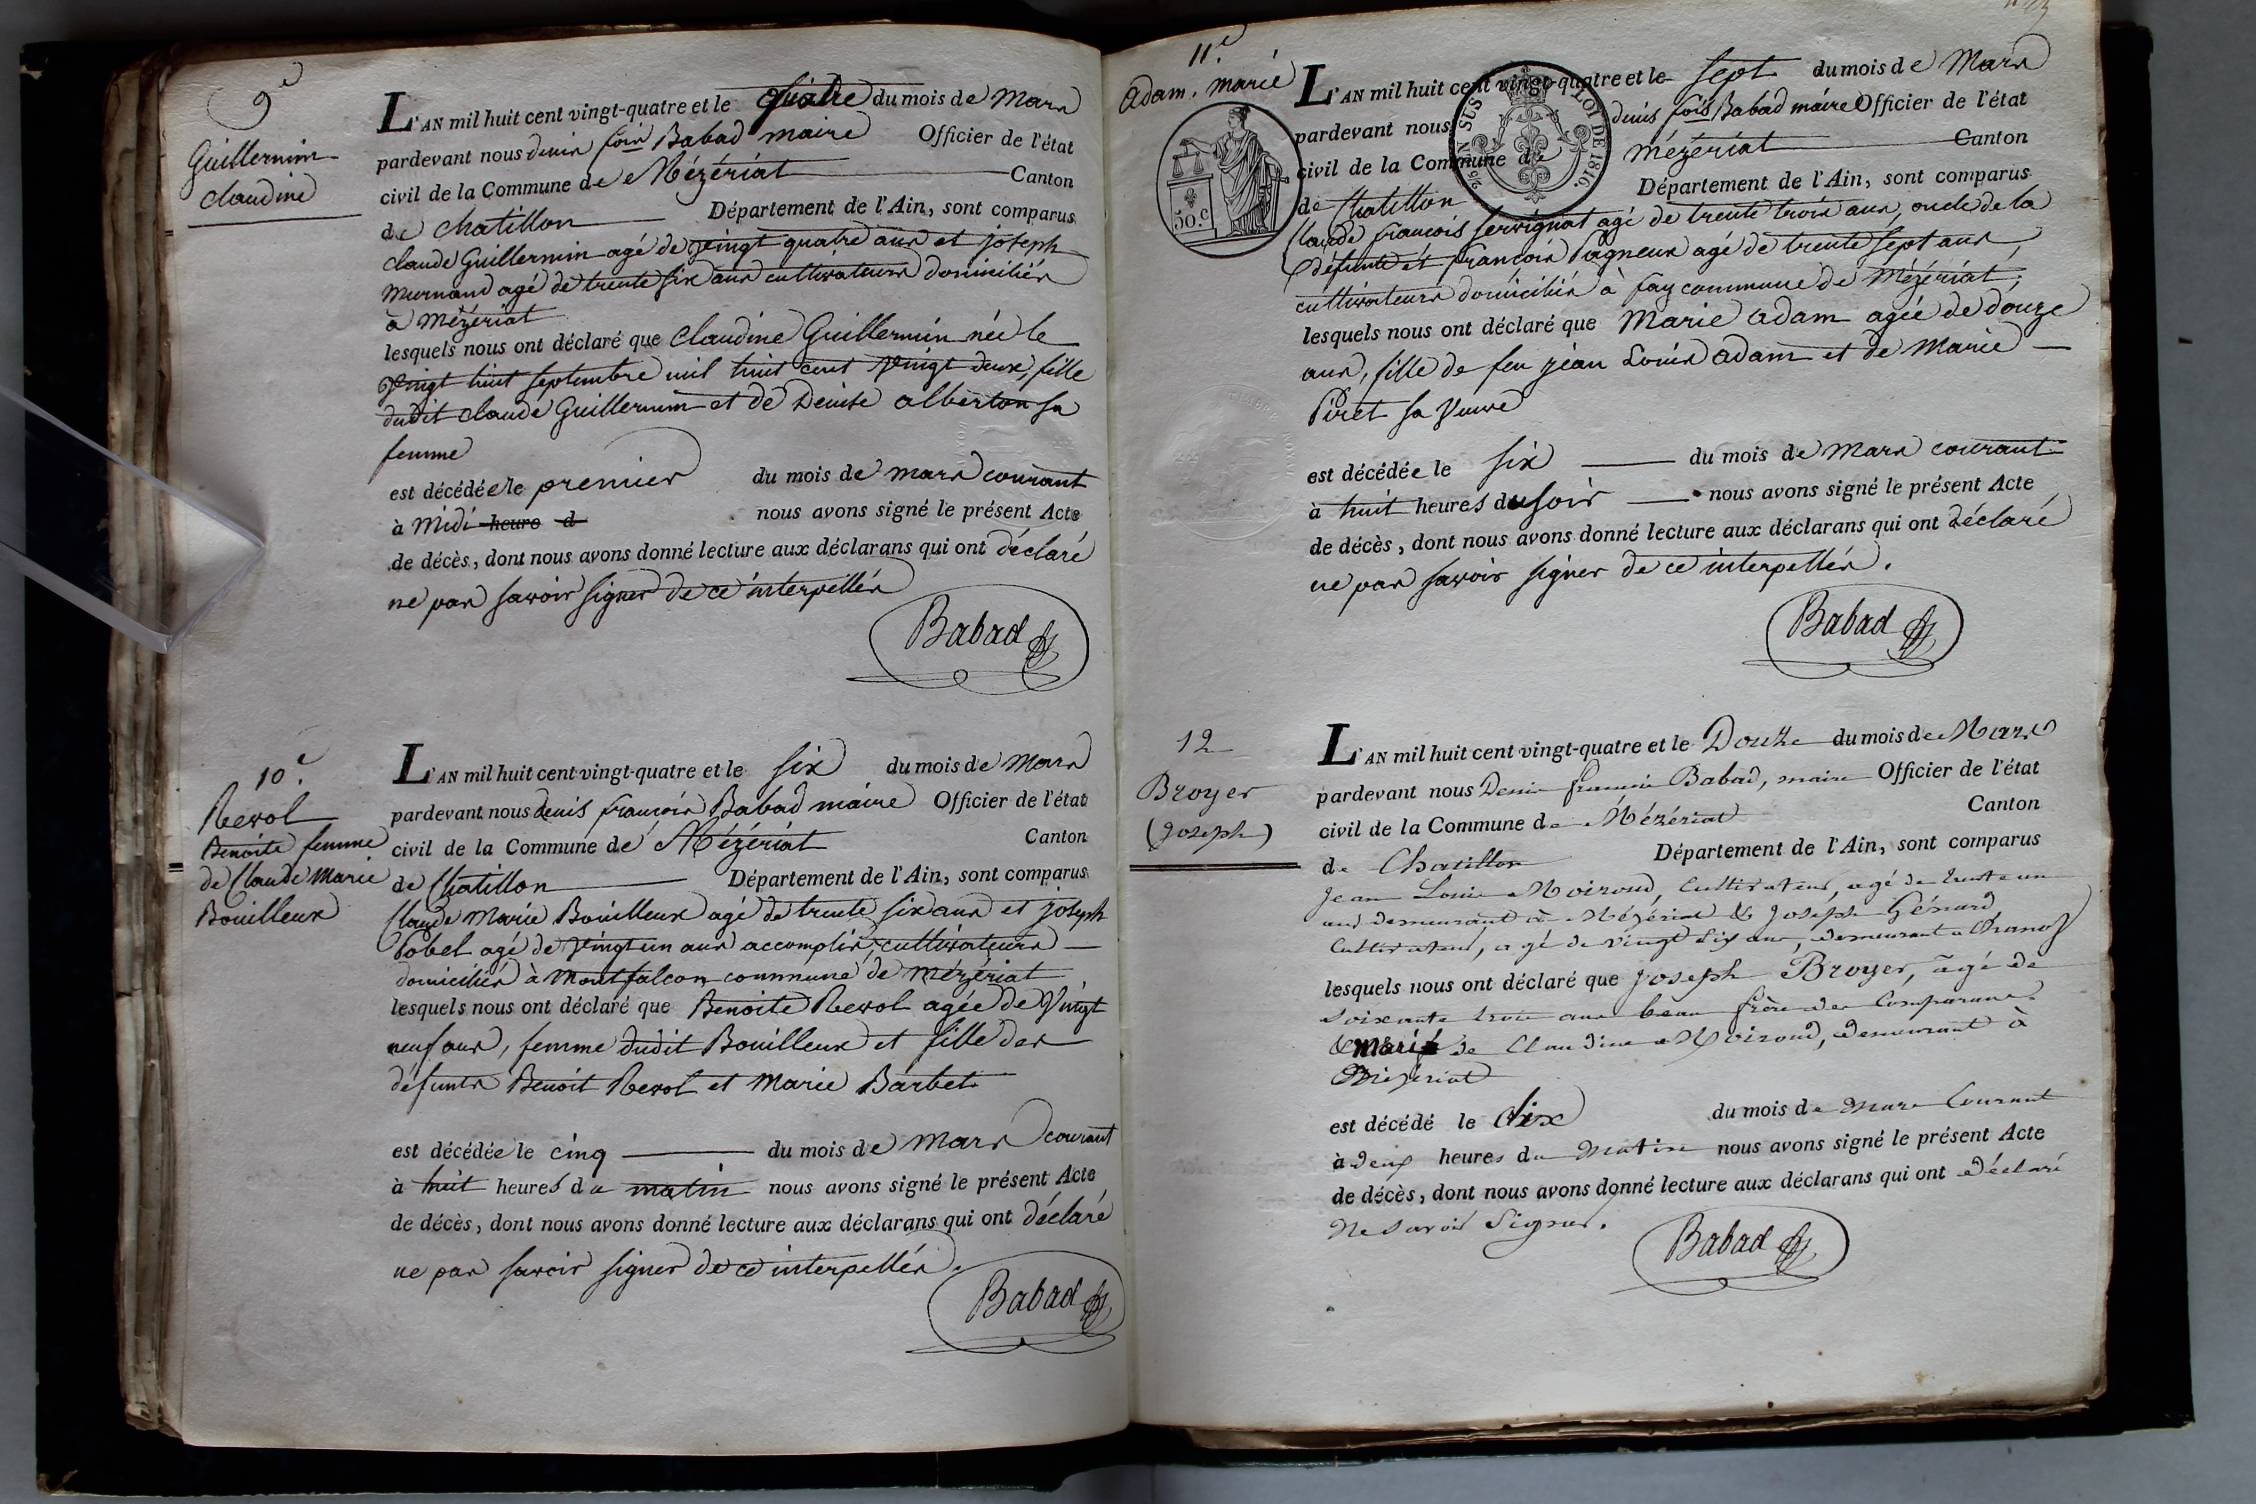 9e
Guillermin
claudine
L'AN mil huit cent vingt-quatre et le quatre du mois de Mars
pardevant nous denis fois Babad maire Officier de l'état
civil de la Commune de Mézériat Canton
de chatillon Département de l'Ain, sont comparus
claude Guillermin agé de vingt quatre ans et joseph
Murnand agé de trente six ans cultivateurs domiciliés
à Mézériat
lesquels nous ont déclaré que claudine Guillermin née le
vingt huit septembre mil huit cent vingt deux, fille
dudit claude Guillermin et de Denise alberton sa
femme
est décédée le premier du mois de mars courant
à Midi heure d nous avons signé le présent Acte
de décès, dont nous avons donné lecture aux déclarans qui ont déclaré
ne pas savoir signer de ce interpellés
Babad
10e
Revol
Benoite femme
de Claude Marie
Bouilleux
L'AN mil huit cent vingt-quatre et le six du mois de Mars
pardevant nous denis françois Babad maire Officier de l'état
civil de la Commune de Mézériat Canton
de Chatillon Département de l'Ain, sont comparus
Claude Marie Bouilleux agé de trente six ans et joseph
Tobel agé de vingt un ans accomplis, cultivateurs
domiciliés à Montfalcon commune de Mézériat
lesquels nous ont déclaré que Benoite Revol agée de vingt
neuf ans, femme dudit Bouilleux et fille des
défunts Benoit Revol et Marie Barbet
est décédée le cinq du mois de Mars courant
à huit heures du matin nous avons signé le présent Acte
de décès, dont nous avons donné lecture aux déclarans qui ont déclaré
ne pas savoir signer de ce interpellés.
Babad
11e
Adam. Marie
50.c
SUS
LOI DE 1816.
L'AN mil huit cent vingt-quatre et le sept du mois de Mars
pardevant nous denis fois Babad maire Officier de l'état
civil de la Commune de Mézériat Canton
de Chatillon Département de l'Ain, sont comparus
Claude françois servignat agé de trente trois ans, oncle de la
défunte et françois Pagneux agé de trente sept ans,
cultivateurs domiciliés à fay commune de Mézériat,
lesquels nous ont déclaré que Marie Adam agée de douze
ans, fille de feu jean Louis Adam et de Marie
Piret sa veuve
est décédée le six du mois de Mars courant
à huit heures du soir nous avons signé le présent Acte
de décès, dont nous avons donné lecture aux déclarans qui ont déclaré
ne pas savoir signer de ce interpellés.
Babad
12
Broyer
(Joseph)
L'AN mil huit cent vingt-quatre et le Douze du mois de Mars
pardevant nous Denis francois Babad, maire Officier de l'état
civil de la Commune de Mézériat Canton
de Chatillon Département de l'Ain, sont comparus
Jean Louis Moiroud, Cultivateur, agé de trente un
ans demeurant à Mézériat & Joseph Génard
Cultivateur, agé de vingt six ans, demeurant a Chanoz
lesquels nous ont déclaré que Joseph Broyer, agé de
Soixante trois ans beau frère des Comparans
& Marié de Claudine Moiroud, demeurant à
Mézériat
est décédé le dix du mois de Mars Courant
à deux heures du Matin nous avons signé le présent Acte
de décès, dont nous avons donné lecture aux déclarans qui ont déclaré
Ne savoir Signer.
Babad